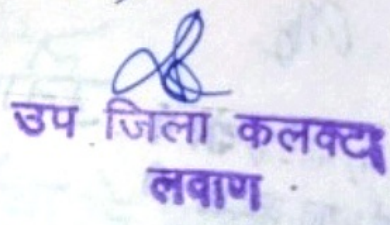 उप जिला कलक्टर
लवाण